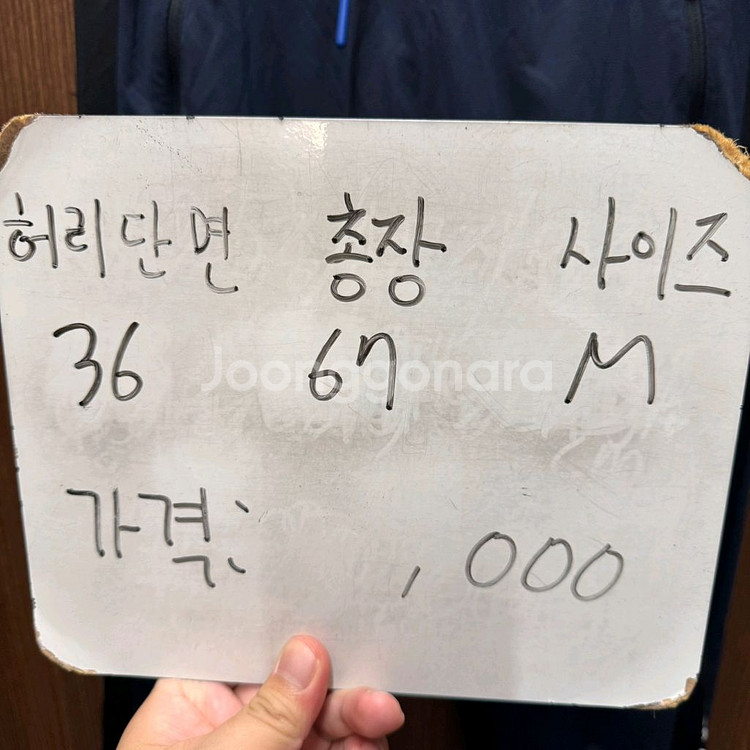 허리단면 총장 사이즈
36 67 M
Joonggonara
가격: ,000